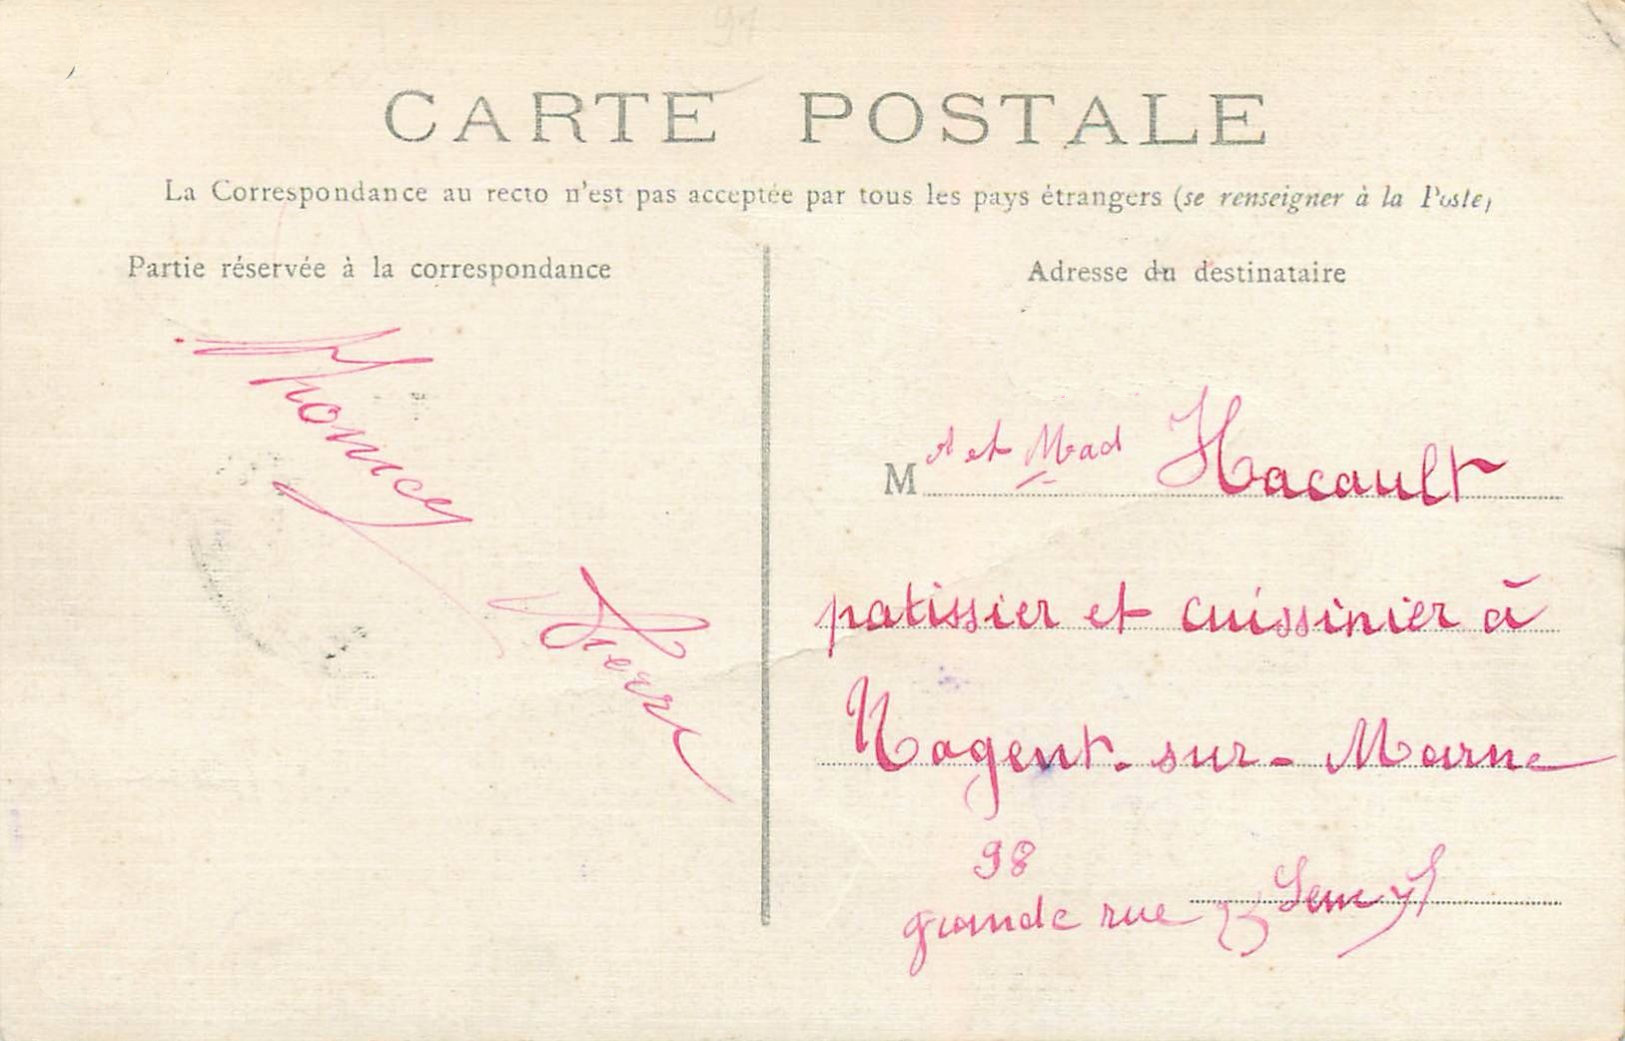 91
CARTE POSTALE
La Correspondance au recto n'est pas acceptée par tous les pays étrangers (se renseigner à la Poste)
Partie réservée à la correspondance
Adresse du destinataire
Pierre
M r et Mad Hacault
patissier et cuissinier à
Nogent-sur-Marne
98
grande rue